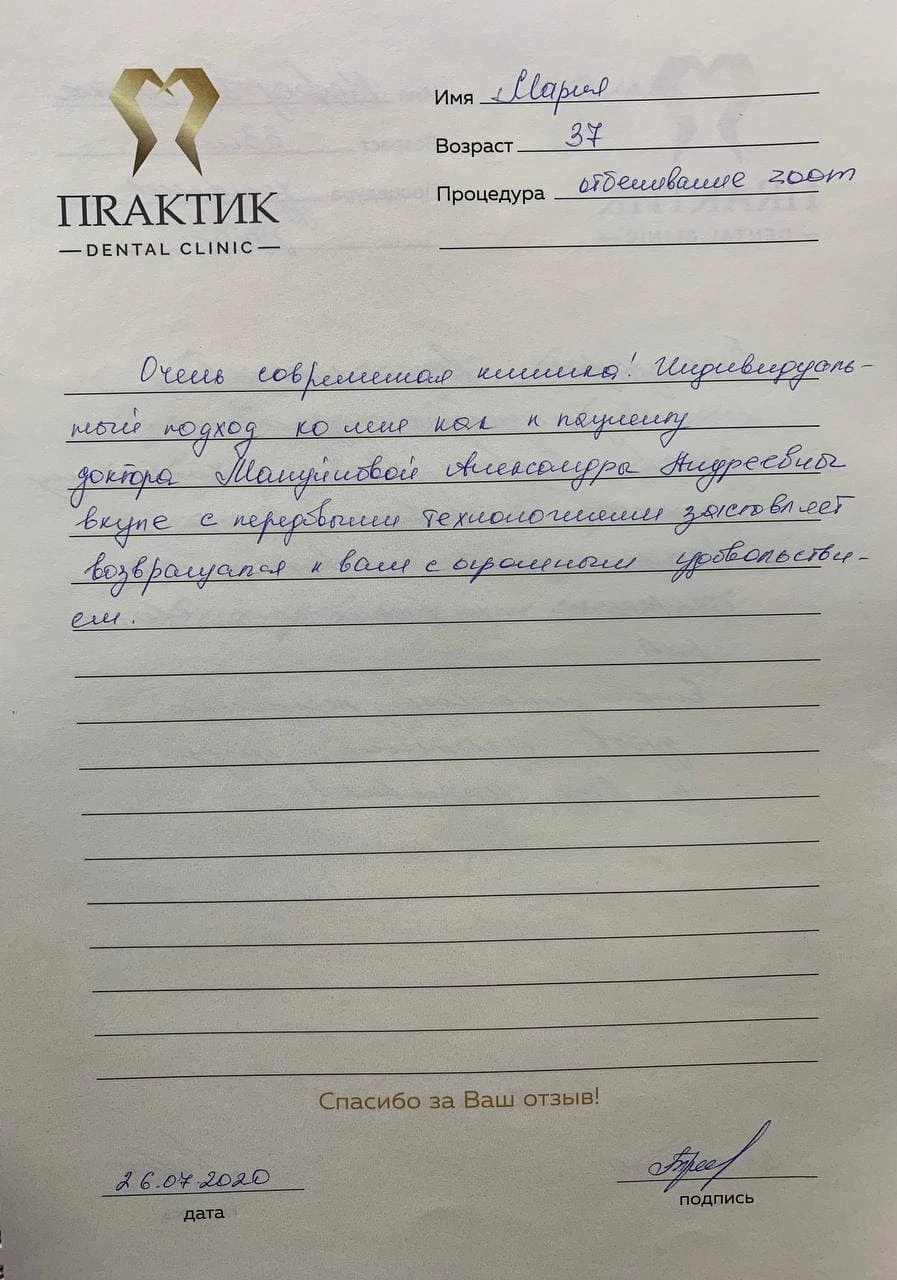 ПRАКТИК
DENTAL CLINIC
Имя Мария
Возраст 37
Процедура отбеливание zoom
Очень современная клиника! Индивидуаль-
ный подход ко мне как к пациенту
доктора Мануйловой Александры Андреевны
вкупе с передовыми технологиями заставляет
возвращаться к вам с огромным удовольстви-
ем.
Спасибо за Ваш отзыв!
26.07.2020
дата
подпись